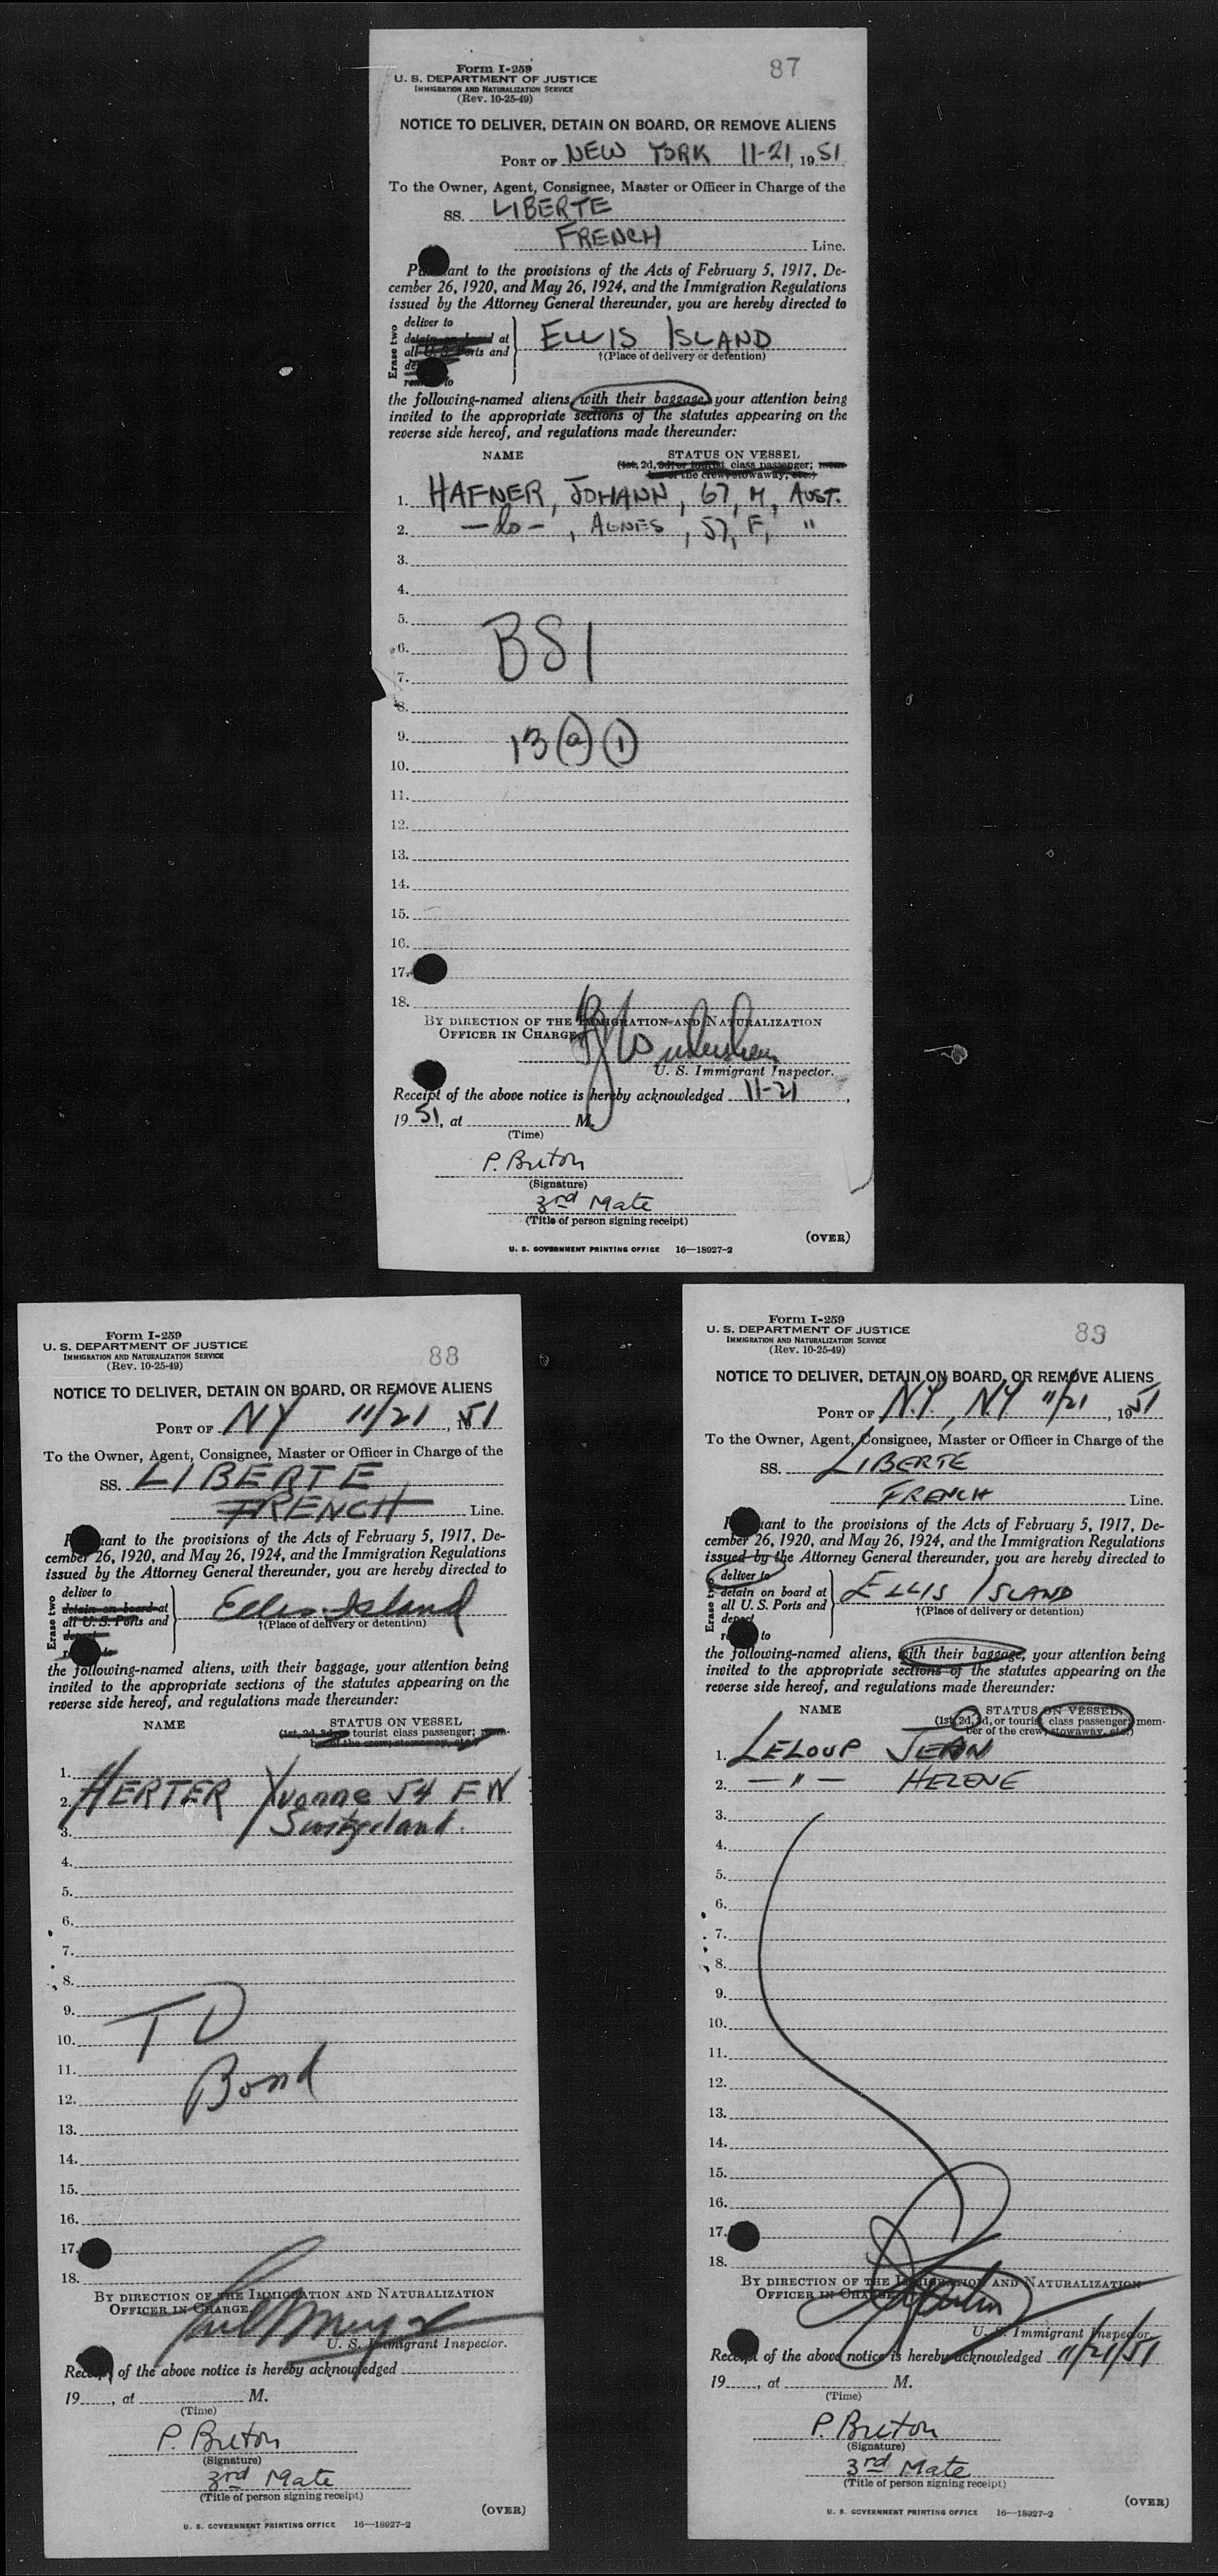 87
Form I-259
U. S. DEPARTMENT OF JUSTICE
IMMIGRATION AND NATURALIZATION SERVICE
(Rev. 10-25-49)
NOTICE TO DELIVER, DETAIN ON BOARD, OR REMOVE ALIENS
PORT OF NEW YORK 11-21, 1951
To the Owner, Agent, Consignee, Master or Officer in Charge of the
SS. LIBERTE
FRENCH Line.
to the provisions of the Acts of February 5, 1917, De-
cember 26, 1920, and May 26, 1924, and the Immigration Regulations
issued by the Attorney General thereunder, you are hereby directed to
Erase two
deliver to
detain on board at
all U. S. Ports and
ELLIS ISLAND
†(Place of delivery or detention)
to
the following-named aliens, with their baggage, your attention being
invited to the appropriate sections of the statutes appearing on the
reverse side hereof, and regulations made thereunder:
NAME STATUS ON VESSEL
(1st, 2d, 3d, or tourist class passenger; mem-
ber of the crew, stowaway, etc.)
1. HAFNER, JOHANN, 67, M, AUST.
2. -do-, AGNES, 57, F, "
3.
4.
5.
6.
7.
BSI
8.
9.
10.
13 (a) (1)
11.
12.
13.
14.
15.
16.
17.
18.
BY DIRECTION OF THE IMMIGRATION AND NATURALIZATION
OFFICER IN CHARGE.
U. S. Immigrant Inspector.
Receipt of the above notice is hereby acknowledged 11-21,
1951, at M.
(Time)
P. Breton
(Signature)
3rd Mate
(Title of person signing receipt)
(OVER)
U. S. GOVERNMENT PRINTING OFFICE 16—18927-2
88
Form I-259
U. S. DEPARTMENT OF JUSTICE
IMMIGRATION AND NATURALIZATION SERVICE
(Rev. 10-25-49)
NOTICE TO DELIVER, DETAIN ON BOARD, OR REMOVE ALIENS
PORT OF NY 11/21, 1951
To the Owner, Agent, Consignee, Master or Officer in Charge of the
SS. LIBERTE
FRENCH Line.
to the provisions of the Acts of February 5, 1917, De-
cember 26, 1920, and May 26, 1924, and the Immigration Regulations
issued by the Attorney General thereunder, you are hereby directed to
Erase two
deliver to
detain on board at
all U. S. Ports and
depart
Ellis Island
†(Place of delivery or detention)
to
the following-named aliens, with their baggage, your attention being
invited to the appropriate sections of the statutes appearing on the
reverse side hereof, and regulations made thereunder:
NAME STATUS ON VESSEL
(1st, 2d, 3d, or tourist class passenger; mem-
ber of the crew, stowaway, etc.)
1.
2. HERTER Yvonne 54 F W
3. Switzerland.
4.
5.
6.
7.
8.
9.
10.
TD
11.
12.
Bond
13.
14.
15.
16.
17.
18.
BY DIRECTION OF THE IMMIGRATION AND NATURALIZATION
OFFICER IN CHARGE.
U. S. Immigrant Inspector.
Receipt of the above notice is hereby acknowledged
19, at M.
(Time)
P. Breton
(Signature)
3rd Mate
(Title of person signing receipt)
(OVER)
U. S. GOVERNMENT PRINTING OFFICE 16—18927-2
89
Form I-259
U. S. DEPARTMENT OF JUSTICE
IMMIGRATION AND NATURALIZATION SERVICE
(Rev. 10-25-49)
NOTICE TO DELIVER, DETAIN ON BOARD, OR REMOVE ALIENS
PORT OF N.Y, NY 11/21, 1951
To the Owner, Agent, Consignee, Master or Officer in Charge of the
SS. LIBERTE
FRENCH Line.
to the provisions of the Acts of February 5, 1917, De-
cember 26, 1920, and May 26, 1924, and the Immigration Regulations
issued by the Attorney General thereunder, you are hereby directed to
Erase two
deliver to
detain on board at
all U. S. Ports and
depart
ELLIS ISLAND
†(Place of delivery or detention)
to
the following-named aliens, with their baggage, your attention being
invited to the appropriate sections of the statutes appearing on the
reverse side hereof, and regulations made thereunder:
NAME STATUS ON VESSEL
(1st, 2d, 3d, or tourist class passenger; mem-
ber of the crew, stowaway, etc.)
1. LELOUP JEAN
2. — " — HELENE
3.
4.
5.
6.
7.
8.
9.
10.
11.
12.
13.
14.
15.
16.
17.
18.
BY DIRECTION OF THE IMMIGRATION AND NATURALIZATION
OFFICER IN CHARGE.
U. S. Immigrant Inspector.
Receipt of the above notice is hereby acknowledged 11/21/51
19, at M.
(Time)
P. Breton
(Signature)
3rd Mate
(Title of person signing receipt)
(OVER)
U. S. GOVERNMENT PRINTING OFFICE 16—18927-2